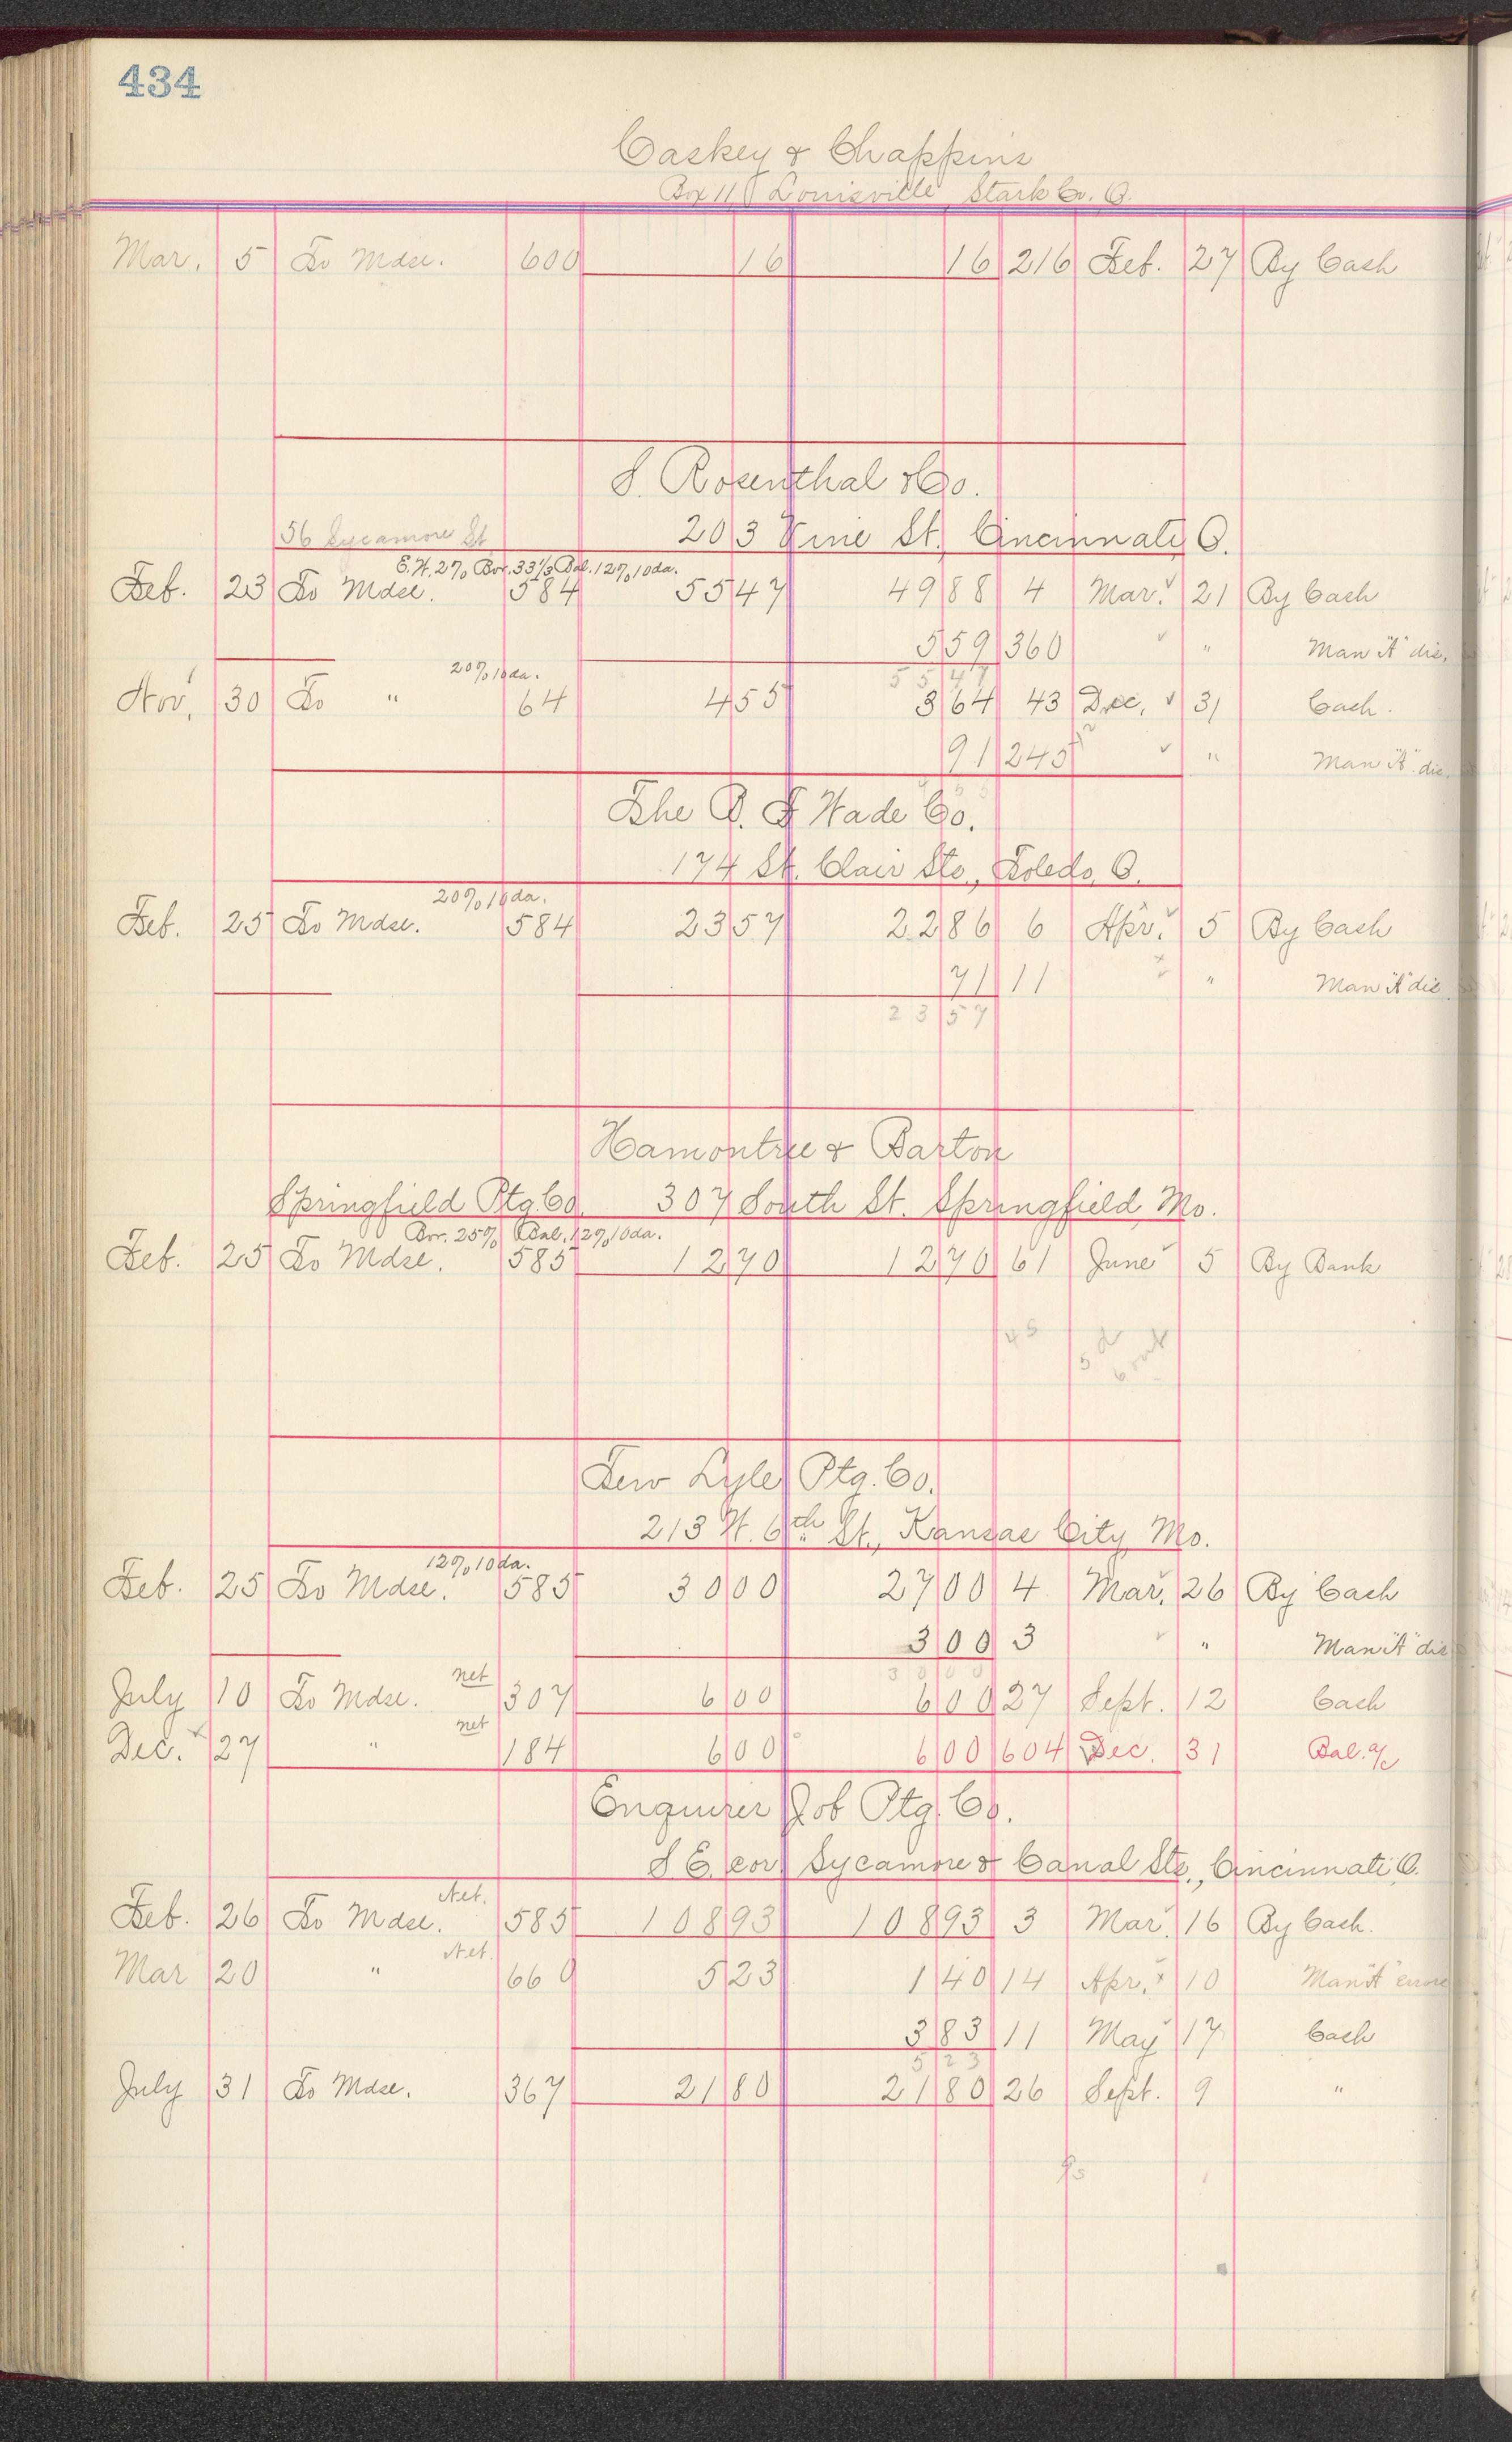 434
Caskey & Chappins
Box 118 Louisville, Stark Co. O.
Mar. 5 To Mdse. 600 16 16 216 Feb. 27 By Cash
S. Rosenthal & Co.
56 Sycamore St 203 Vine St. Cincinnati, O.
E.W. 2% Bor. 33⅓ Bal. 12% 10 da.
Feb. 23 To Mdse. 584 55 47 49 88 4 Mar. ✓ 21 By Cash
5 59 360 ✓ " Man "A" dis.
20% 10 da. 55 47
Nov. 30 To " 64 4 55 3 64 43 Dec. ✓ 31 Cash.
91 245 ✓ " Man "A" dis.
The B. F. Wade Co.
174 St. Clair Sts., Toledo, O.
20% 10 da.
Feb. 25 To Mdse. 584 23 57 22 86 6 Apr. ✓ 5 By Cash
71 11 " Man "A" dis
23 57
Hamontree & Barton
Springfield Ptg. Co. 307 South St. Springfield, Mo.
Bor. 25% Bal. 12% 10 da.
Feb. 25 To Mdse. 585 12 70 12 70 61 June ✓ 5 By Bank
Tew Lyle Ptg. Co.
213 W. 6th St., Kansas City, Mo.
12% 10 da.
Feb. 25 To Mdse. 585 30 00 27 00 4 Mar. 26 By Cash
3 00 3 ✓ " Man "A" dis
net 30 00
July 10 To Mdse. 307 6 00 6 00 27 Sept. 12 Cash
net
Dec. 27 " 184 6 00 6 00 604 Dec. 31 Bal. a/c
Enquirer Job Ptg. Co.
S E. cor. Sycamore & Canal Sts., Cincinnati O.
Net.
Feb. 26 To Mdse. 585 108 93 108 93 3 Mar. 16 By Cash.
Net.
Mar 20 " 660 5 23 1 40 14 Apr. 10 Man "A" error
3 83 11 May 17 Cash
5 23
July 31 To Mdse. 367 21 80 21 80 26 Sept. 9 "